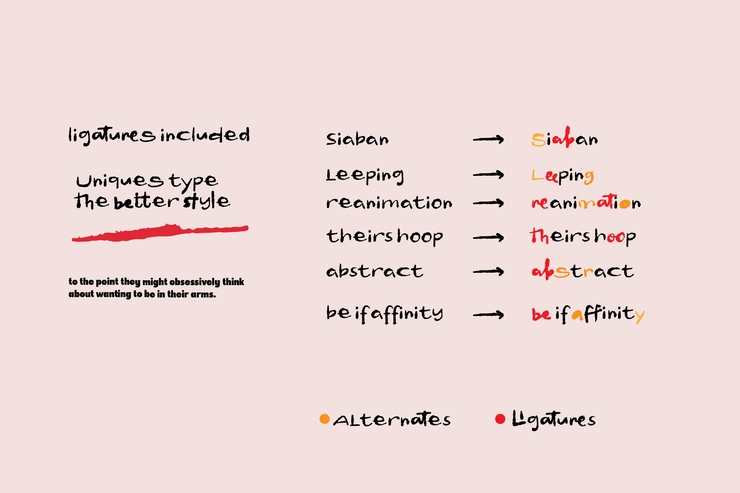 ligatures included
Uniques type
the better style
to the point they might obsessively think
about wanting to be in their arms.
Siaban → Siaban
Leeping → Leeping
reanimation → reanimation
theirshoop → theirshoop
abstract → abstract
be if affinity → be if affinity
Alternates
Ligatures